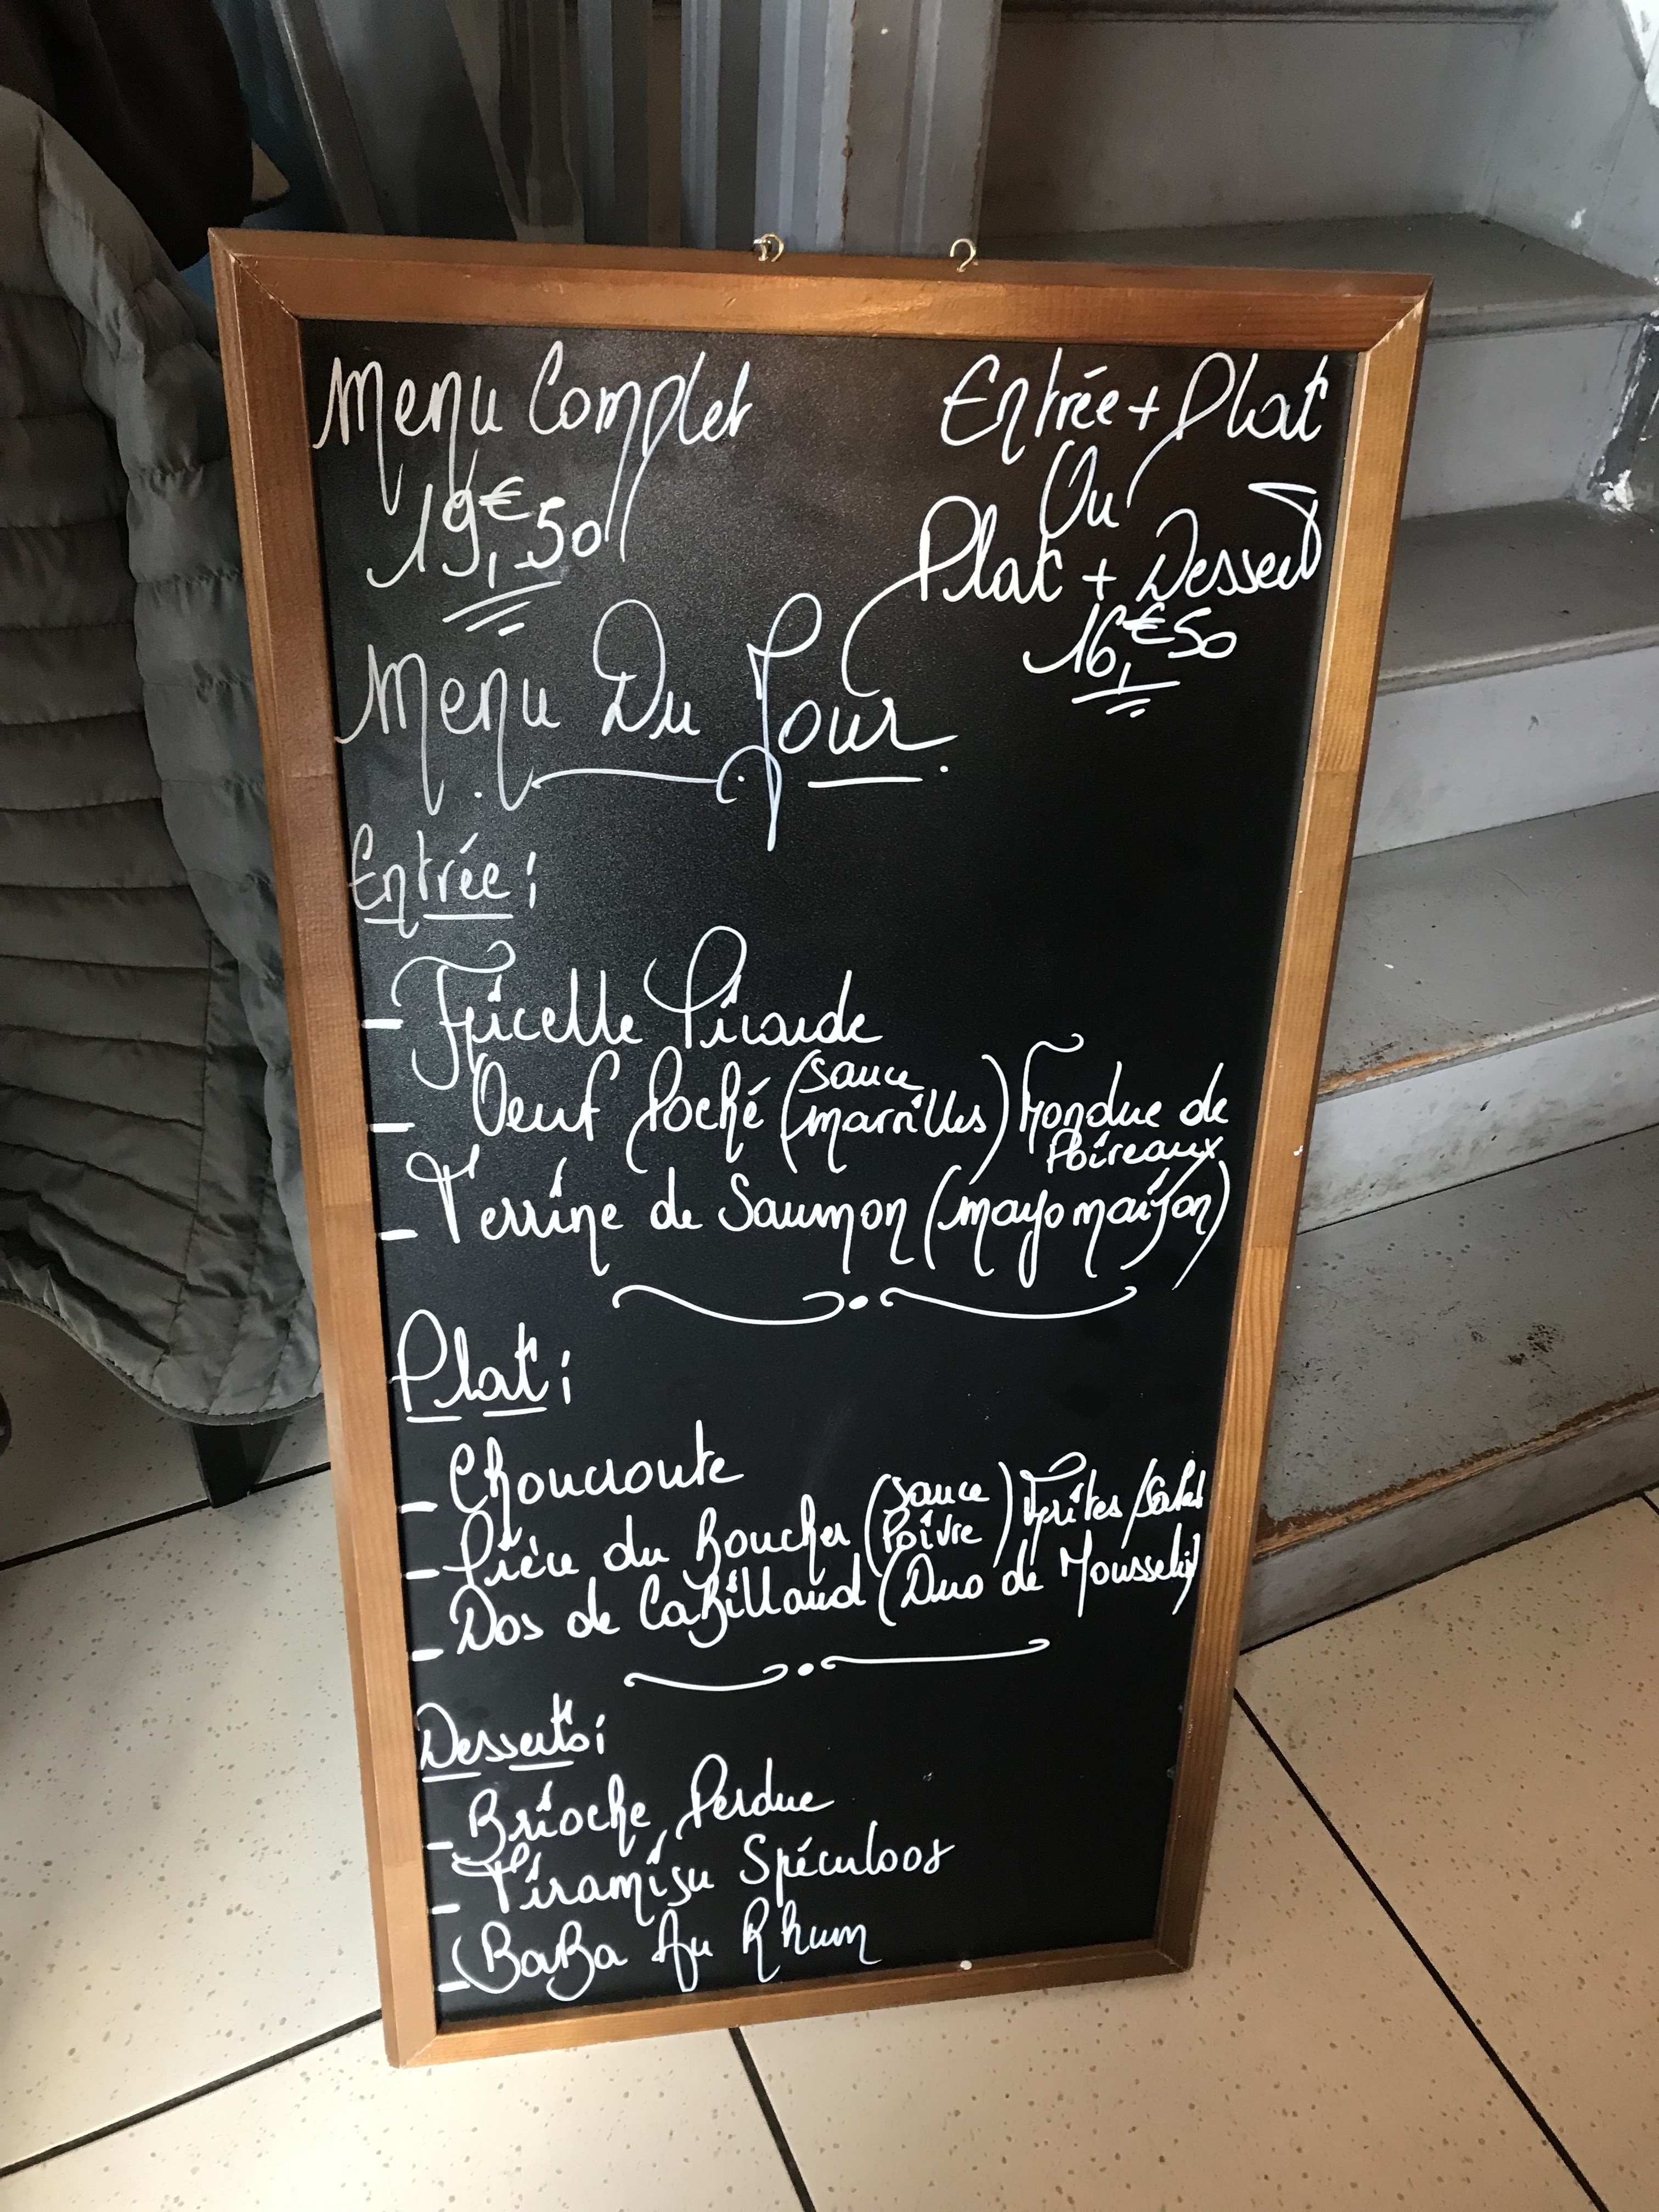 Menu Complet
19,€50
Entrée + Plat
Ou
Plat + Dessert
16,€50
Menu Du Jour
Entrée:
- Ficelle Picarde
- Oeuf Poché (sauce marrilles) Fondue de Poireaux
- Terrine de Saumon (mayo maison)
Plat:
- Choucroute
- Pièce du Boucher (sauce Poivre) Frites/Salad
- Dos de Cabillaud (Duo de Mousselin)
Desserts:
- Brioche Perdue
- Tiramisu Spéculoos
- BaBa Au Rhum